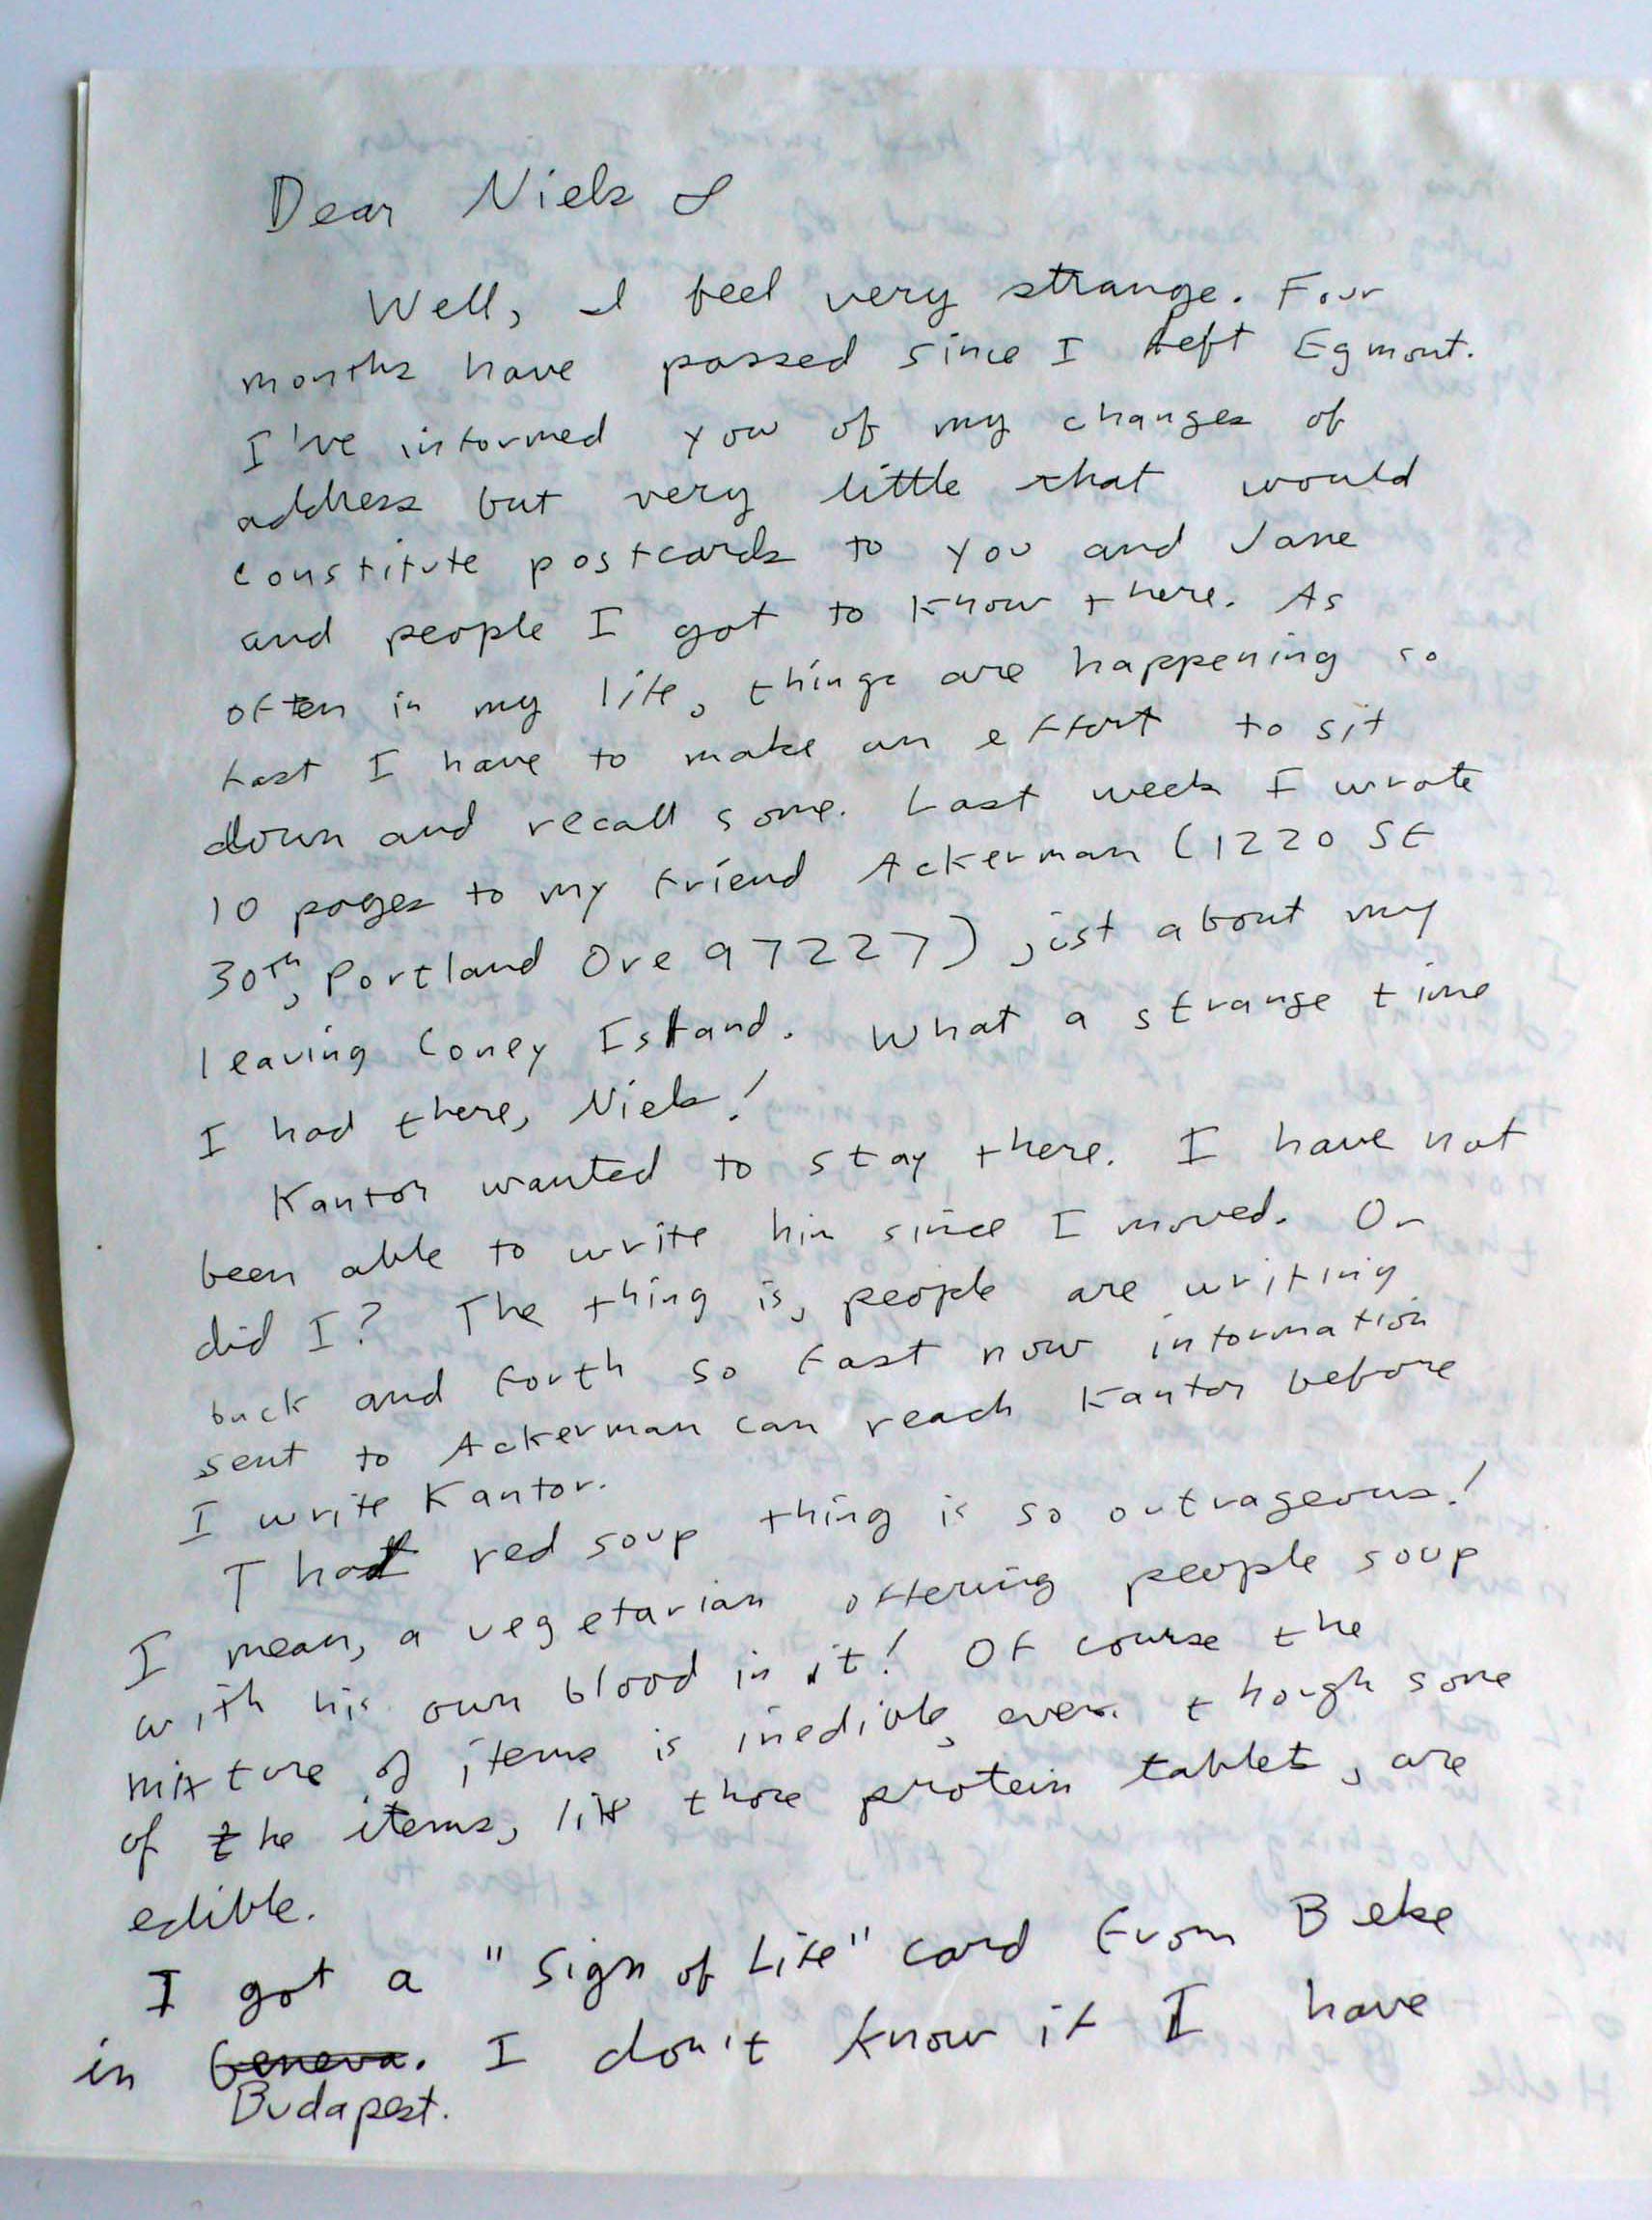 Dear Niels &
Well, I feel very strange. Four
months have passed since I left Egmont.
I've informed you of my changes of
address but very little that would
constitute postcards to you and Jane
and people I got to know there. As
often in my life, things are happening so
fast I have to make an effort to sit
down and recall some. Last week I wrote
10 pages to my friend Ackerman (1220 SE
30th, Portland Ore 97227) just about my
leaving Coney Island. What a strange time
I had there, Niels!
Kantor wanted to stay there. I have not
been able to write him since I moved. Or
did I? The thing is, people are writing
back and forth so fast now information
sent to Ackerman can reach Kantor before
I write Kantor.
That red soup thing is so outrageous!
I mean, a vegetarian offering people soup
with his own blood in it! Of course the
mixture of items is inedible, even though some
of the items, like those protein tablets, are
edible.
I got a "Sign of Life" card from Beke
in Geneva. I don't know if I have
Budapest.